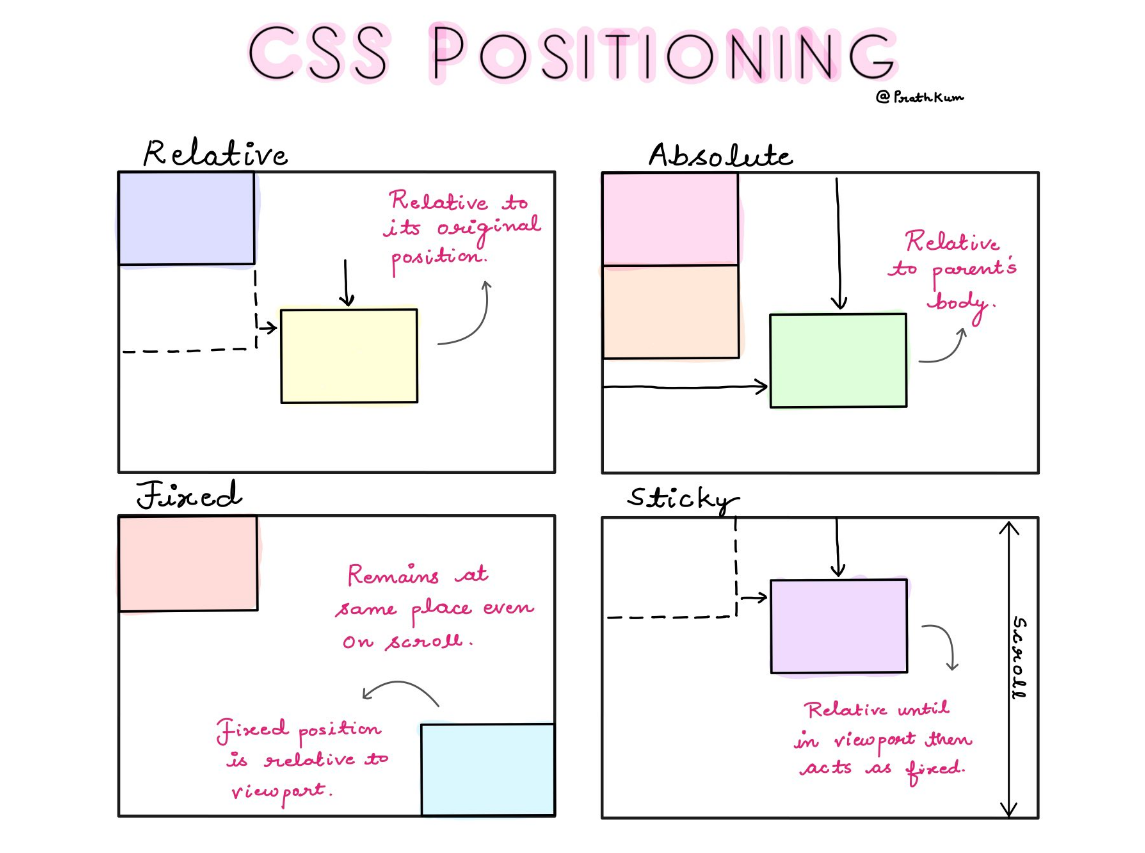 CSS POSITIONING
@PrathKum
Relative
Relative to
its original
position.
Absolute
Relative
to parent's
body.
Fixed
Remains at
same place even
on scroll.
Fixed position
is relative to
viewport.
Sticky
Scroll
Relative until
in viewport then
acts as fixed.